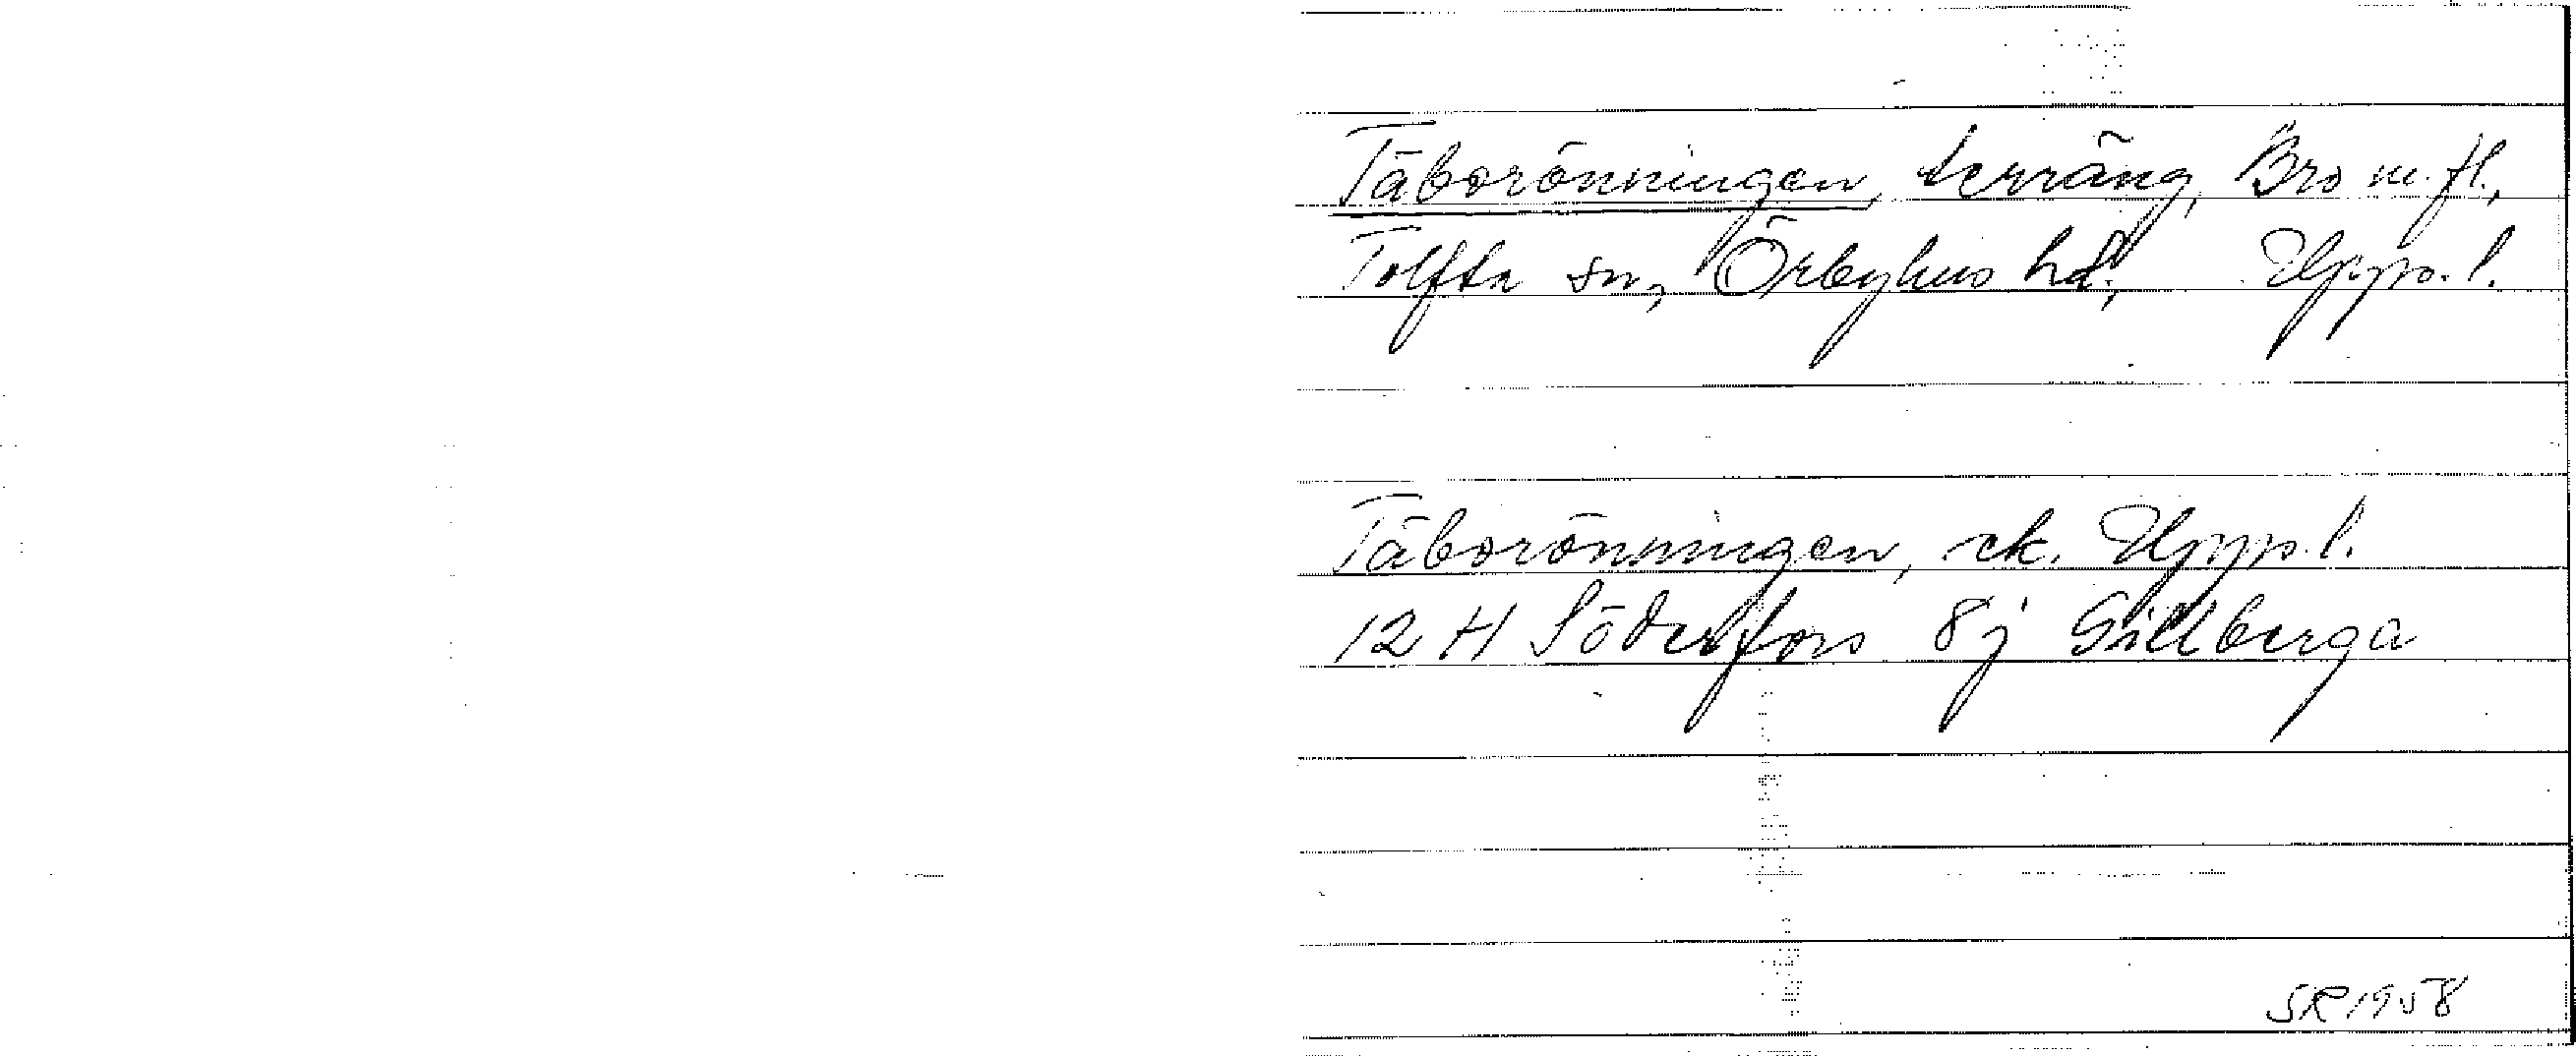 Täborönningen, terräng, Bro m.fl.,
Tolfta sn, Örbyhus hd, Upps. l.
Täborönningen, ek. Upps. l.
12 H Söderfors 8j Gillberga
SR 1958